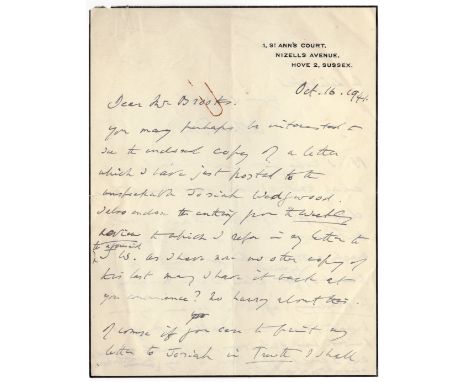 1, ST ANN'S COURT,
NIZELLS AVENUE,
HOVE 2, SUSSEX.
Oct. 16. 1941.
Dear Mr Brooks.
You may perhaps be interested to
see the enclosed copy of a letter
which I have just posted to the
unspeakable Josiah Wedgwood.
I also enclose the cutting from the Weekly
Review to which I refer in my letter to
J W. as I have now no other copy of
this last may I have it back at
your convenience? No hurry about this.
Of course if you care to print my
letter to Josiah in Truth I shall